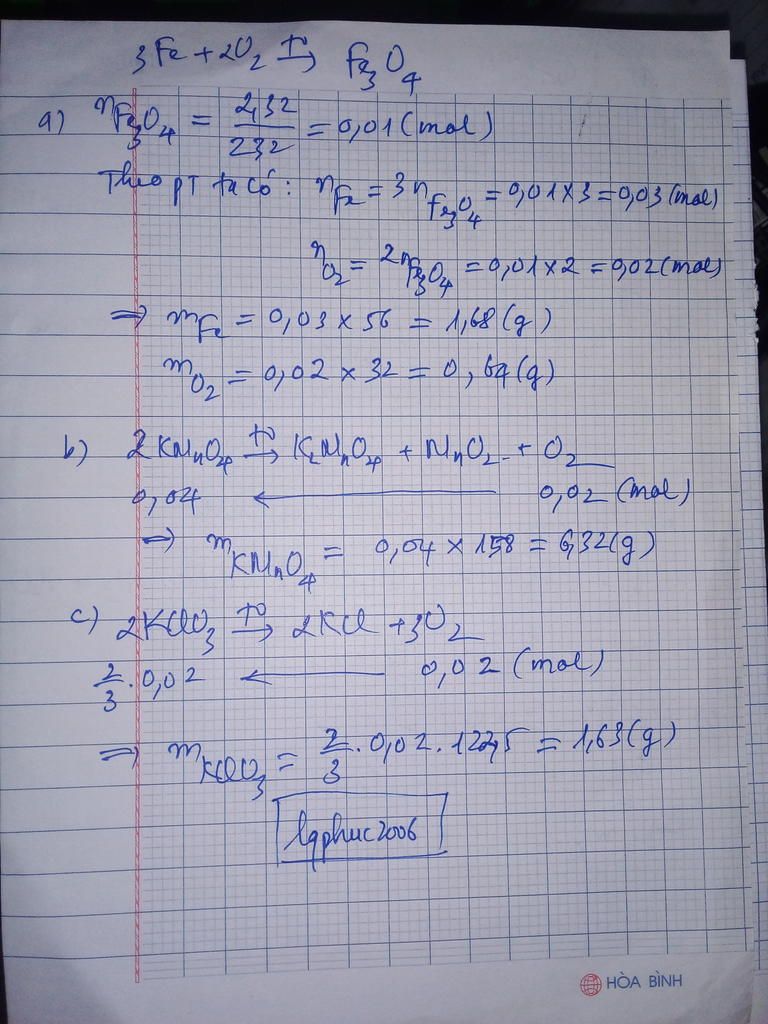 3Fe + 2O2 t° → Fe3O4
a) nFe3O4 = 2,32/232 = 0,01 (mol)
Theo pt ta có: nFe = 3nFe3O4 = 0,01 x 3 = 0,03 (mol)
nO2 = 2nFe3O4 = 0,01 x 2 = 0,02 (mol)
=> mFe = 0,03 x 56 = 1,68 (g)
mO2 = 0,02 x 32 = 0,64 (g)
b) 2KMnO4 t° → K2MnO4 + MnO2 + O2
0,04 ← 0,02 (mol)
=> mKMnO4 = 0,04 x 158 = 6,32 (g)
c) 2KClO3 t° → 2KCl + 3O2
2/3 . 0,02 ← 0,02 (mol)
=> mKClO3 = 2/3 . 0,02 . 122,5 = 1,63 (g)
lqphuc2006
HÒA BÌNH